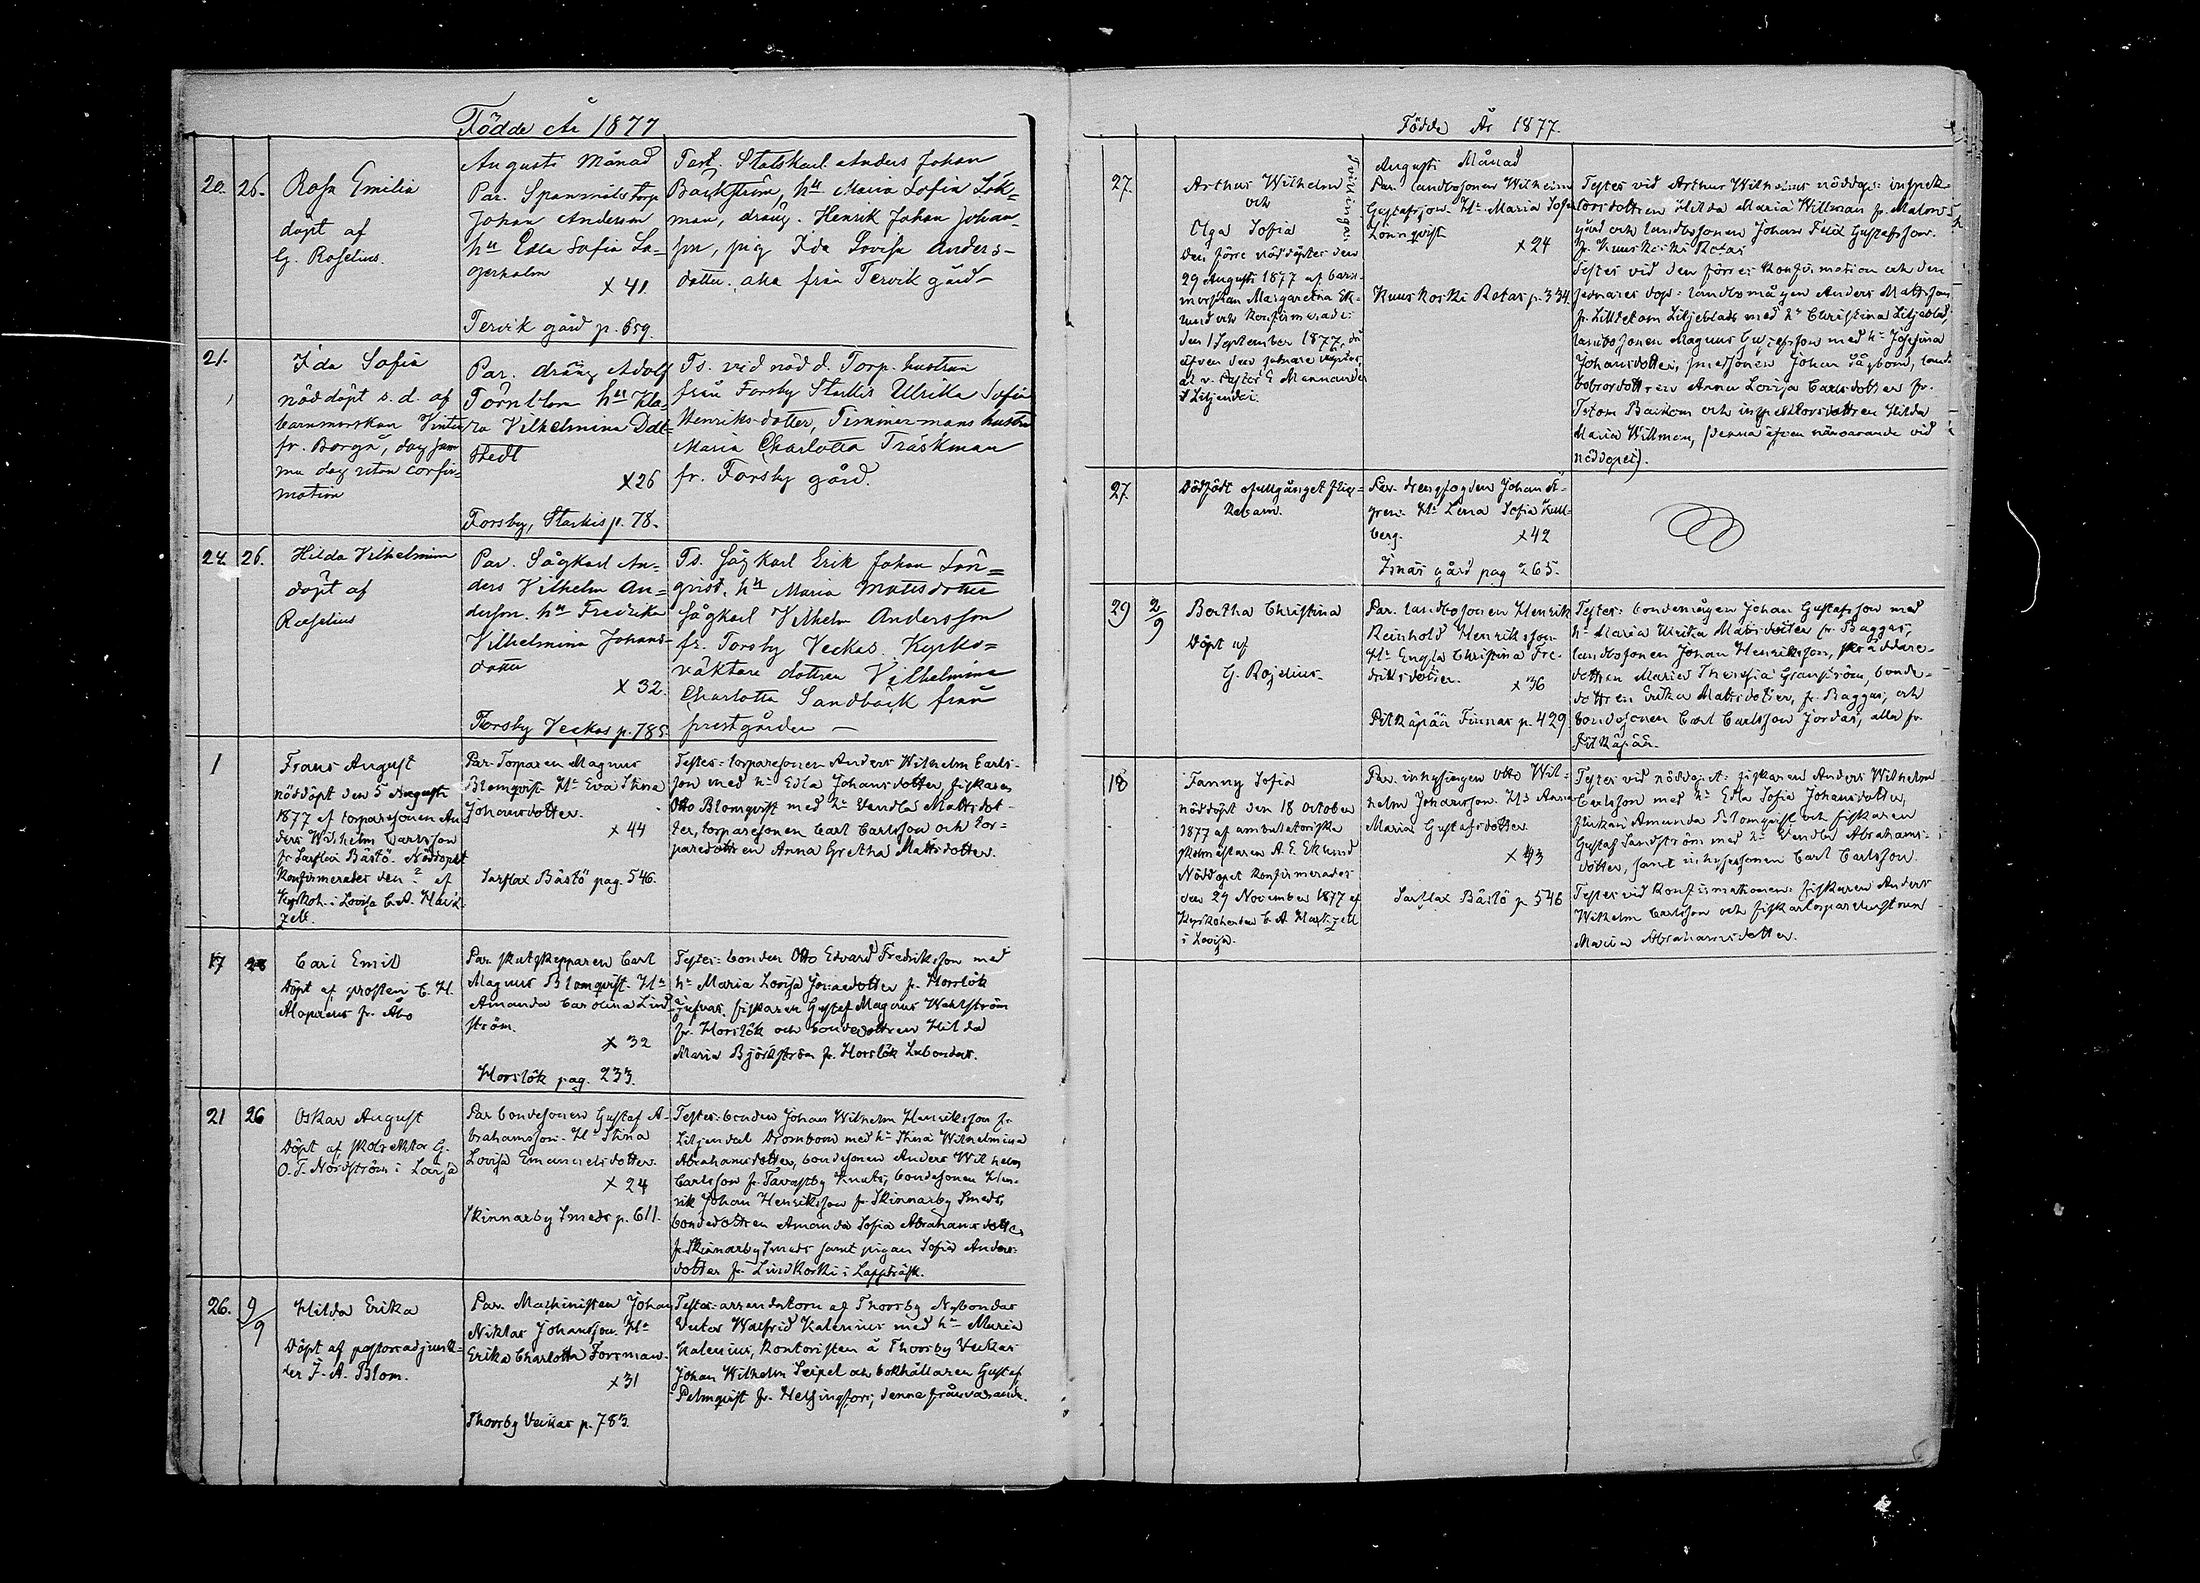 Födde År 1877
20. 26. Rosa Emilia
döpt af
G. Roselius.
Augusti Månad
Par. Spanmåls torp.
Johan Anderson
hu Edla Sofia La-
gerholm
x 41
Tervik gård p. 659.
Test. Statskarl Anders Johan
Backström, hu Maria Sofia Lök-
man, dräng. Henrik Johan Johan-
son, pig Ida Lovisa Anders-
dotter. alla från Tervik gård
21. Ida Sofia
nöddöpt s. d. af
barnmorskan Winter
fr. Borgå, dog sam
ma dag utan confir-
mation
Par. dräng Adolf
Törnblom hu Kla-
ra Vilhelmina Dal-
stedt
x 26
Forsby, Starkis p. 78.
Ts. vid nöd d. Torp. hustrun
från Forsby Starkis Ulrika Sofia
Henriks-dotter, Timmermans hustru
Maria Charlotta Träskman
fr. Forsby gård.
24. 26. Hilda Vilhelmina
döpt af
Roselius
Par. Sågkarl An-
ders Vilhelm An-
derson. hu Fredrika
Vilhelmina Johans-
dotter
x 32.
Forsby Veckas p. 785.
Ts. Sågkarl Erik Johan Lön-
qvist, hu Maria Matsdotter
Sågkarl Vilhelm Andersson
fr. Forsby Veckas. Kyrko-
väktare dottren Vilhelmina
Charlotta Sandbäck från
prestgården —
1 Frans August
nöddöpt den 5 Augusti
1877 af torparesonen An
ders Wilhelm Carlsson
fr Sarflax Båstö. Nöddopet
konfirmerades den ? af
Kyrkoh. i Lovisa C. A.
Par. Torparen Magnus
Blomqvist. Ha Eva Stina
Johansdotter.
x 44
Sarflax Båstö pag. 546.
Testes: torparesonen Anders Wilhelm Carls-
son med ha Edla Johansdotter, fiskaren
Otto Blomqvist med ha Vendla Mattsdot-
ter, torparesonen Carl Carlsson och tor-
paredottren Anna Gretha Mattsdotter.
17 28 Carl Emil
Döpt af prosten C. H.
Alopaeus fr. Åbo
Par. skutskepparen Carl
Magnus Blomqvist. Ha
Amanda Carolina Lind
ström.
x 32
Horslök pag. 233.
Testes: bonden Otto Edvard Fredriksson med
ha Maria Lovisa Jonaedotter fr. Horslök
fiskaren Gustaf Magnus Wahlström
fr. Horslök och bondedottren Hilda
Maria Björkström fr. Horslök
21 26 Oskar August
Döpt af skolrektor G.
O. T. Nordström i Lovisa
Par. bondesonen Gustaf A-
brahamsson. Ha Stina
Lovisa Emanuelsdotter.
x 24
Skinnarby Smeds p. 611.
Testes: bonden Johan Wilhelm Henriksson fr
Liljendal Drombom med ha Stina Wilhelmina
Abrahamsdotter, bondesonen Anders Wilhelm
Carlsson fr. Tavastby Knuts, bondesonen Hen-
rik Johan Henriksson fr. Skinnarby Smeds,
bondedottren Amanda Sofia Abrahamsdotter
fr. Skinnarby Smeds samt pigan Sofia Anders-
dotter fr. Lindkoski i Lappträsk.
26. 9/9 Hilda Erika
Döpt af pastorsadjunk-
ten J. A. Blom.
Par. Maskinisten Johan
Niklas Johansson. Ha
Erika Charlotta Forsman.
x 31
Thorsby Veckas p. 783.
Testes: arrendatorn af Thorsby Nybondas
Victor Walfrid Kalenius med ha Maria
Kalenius, kontoristen å Thorsby Veckas
Johan Wilhelm Seipel och bokhållaren Gustaf
Palmqvist fr. Helsingfors; denna frånvarande.
Födde År 1877.
27. Arthur Wilhelm
och
Olga Sofia
Tvillingar
Den förre nöddöptes den
29 Augusti 1877 af barn-
morskan Margaretha Ek-
lund och konfirmerades
den 1 September 1877, då
äfven den senare döptes
af v. Pastor E Mennander
i Liljendal.
Augusti Månad
Par. landbosonen Wilhelm
Gustafsson. Ha Maria Sofia
Lönnqvist
x 24
Kuuskoski Rotas p. 334
Testes vid Arthur Wilhelms nöddop: inspek-
torsdottren Hilda Maria Willman fr. Malm
gård och landbosonen Johan Felix Gustafsson
fr. Kuuskoski Rotas
Testes vid den förres konfirmation och den
senares dop: landbomågen Anders Mattsson
fr. Lilldelom Liljeblads med ha Christina Liljeblad,
landbosonen Magnus Gustafsson med ha Josefina
Johansdotter, smedsonen Johan Sågbom, land-
bobrordottren Anna Lovisa Carlsdotter fr.
Tetom Backom och inspektorsdottren Hilda
Maria Willman, (denna äfven närvarande vid
nöddopet).
27 Dödfödt ofullgånget flic-
kebarn.
Par. drengfogden Johan
gren. Ha Lena Sofia Kull-
berg.
x 42
Isnäs gård pag 265.
29 2/9 Bertha Christina
Döpt af
G. Roselius.
Par. landbosonen Henrik
Reinhold Henriksson
Ha Engla Christina Fre-
driksdotter.
x 36
Pitkäpää Finnas p. 429
Testes: bondemågen Johan Gustafsson med
ha Maria Ulrika Matsdotter fr. Baggas,
landbosonen Johan Henriksson, skräddare-
dottren Maria Theresia Granström, bonde-
dottren Erika Mattsdotter, fr. Baggas; och
bondesonen Carl Carlsson Jordas, alla fr
Pitkäpää.
18 Fanny Sofia
nöddöpt den 18 October
1877 af ambulatoriske
skolmästaren A. E. Eklund
Nöddopet konfirmerades
den 29 November 1877 af
Kyrkoherden C. A.
i Lovisa.
Par. inhysingen Otto Wil-
helm Johansson. Ha Anna
Maria Gustafsdotter.
x 43
Sarflax Båstö p 546
Testes vid nöddopet: fiskaren Anders Wilhelm
Carlsson med ha Edla Sofia Johansdotter,
flickan Amanda Blomqvist och fiskaren
Gustaf Sandström med ha Vendla Abrahams-
dotter, samt inhysessonen Carl Carlsson.
Testes vid konfirmationen: fiskaren Anders
Wilhelm Carlsson och fiskartorparehustrun
Maria Abrahamsdotter.